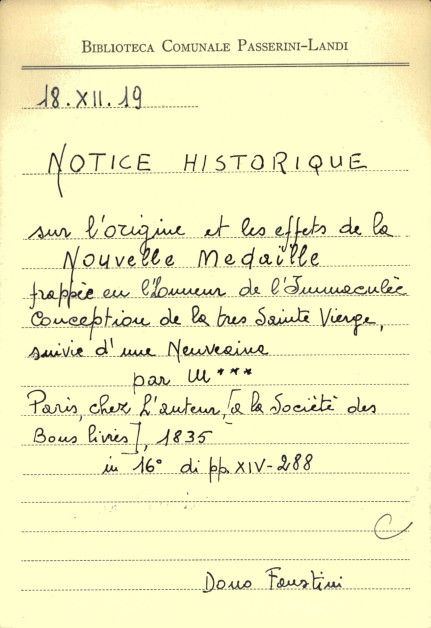 BIBLIOTECA COMUNALE PASSERINI-LANDI
18.XII.19
NOTICE HISTORIQUE
sur l'origine et les effets de la
Nouvelle Medaille
frappèe en l'Honneur de l'Immaculèe
Conception de la tres Sainte Vierge,
suivie d'une Neuvaine
par M***
Paris, chez l'auteur, [a la Societè des
Bons livres], 1835
in 16° di pp. XIV-288
C
Dono Faustini